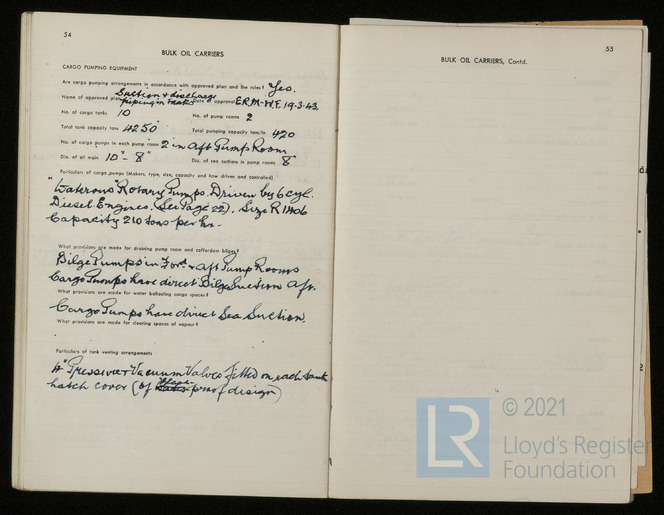 54
BULK OIL CARRIERS
CARGO PUMPING EQUIPMENT
Are cargo pumping arrangements in accordance with approved plan and the rules? Yes.
Name of approved plan Suction & discharge piping in tanks Date of approval E.R.M-H.F. 19.3.43
No. of cargo tanks 10 No. of pump rooms 2
Total tank capacity tons 4250 Total pumping capacity tons/hr. 420
No. of cargo pumps in each pump room 2 in Aft Pump Room
Dia. of oil main 10" - 8" Dia. of sea suctions in pump rooms 8"
Particulars of cargo pumps (Makers, type, size, capacity and how driven and controlled)
"Waterous" Rotary Pumps. Driven by 6 cyl.
Diesel Engines. (See Page 22). Size R 1406
Capacity 210 tons per hr.
What provisions are made for draining pump room and cofferdam bilges?
Bilge Pumps in Ford & Aft Pump Rooms
Cargo Pumps have direct Bilge Suction Aft.
What provisions are made for water ballasting cargo spaces?
Cargo Pumps have direct Sea Suction.
What provisions are made for clearing spaces of vapour?
Particulars of tank venting arrangements
4" Pressure & Vacuum Valves fitted on each tank
hatch cover (of flame proof design)
55
BULK OIL CARRIERS, Contd.
© 2021
LR
Lloyd's Register
Foundation